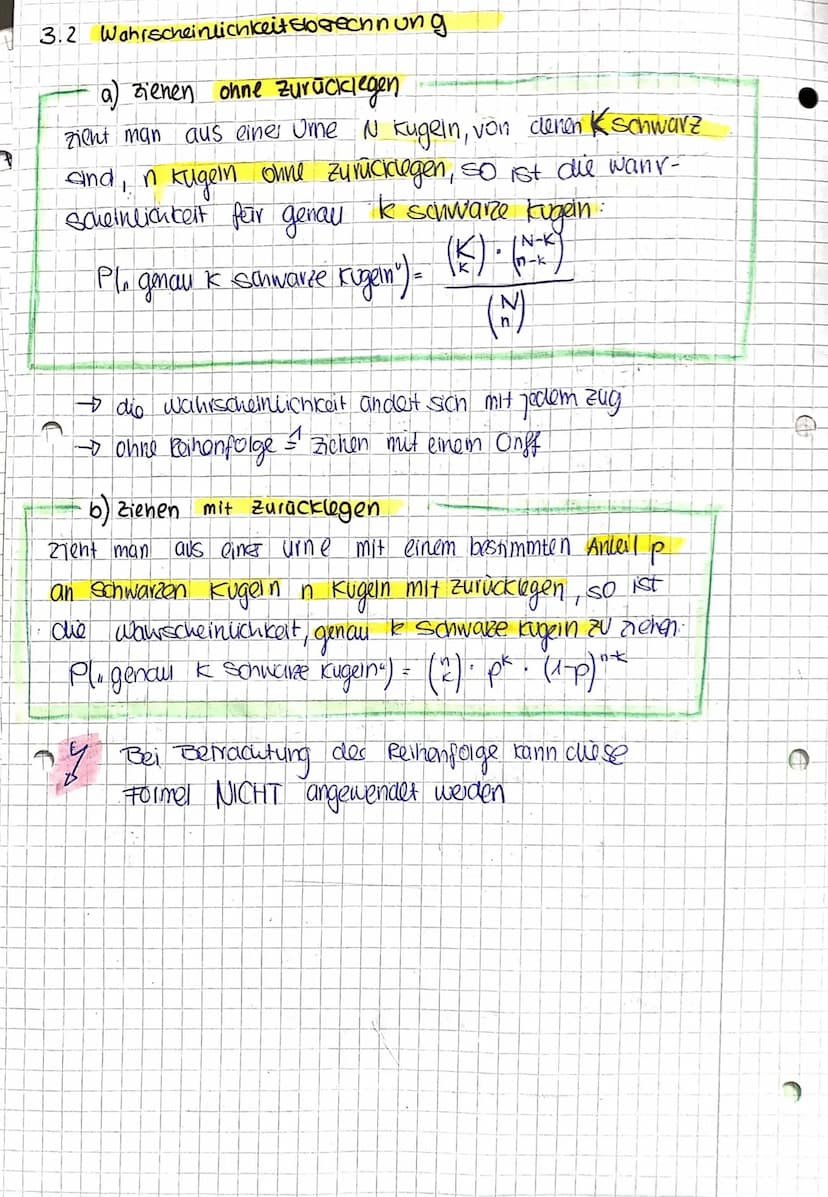 3.2 Wahrscheinlichkeitsberechnung
a) ziehen ohne Zurücklegen
zieht man aus einer Urne N Kugeln, von denen K schwarz
sind, n Kugeln ohne zurücklegen, so ist die wahr-
scheinlichkeit für genau k schwarze Kugeln:
P(„genau k schwarze Kugeln") = (K k) · (N-K n-k) / (N n)
→ die Wahrscheinlichkeit ändert sich mit jedem Zug
→ ohne Reihenfolge ≙ ziehen mit einem Griff
b) ziehen mit zurücklegen
zieht man aus einer urne mit einem bestimmten Anteil p
an schwarzen Kugeln n Kugeln mit zurücklegen, so ist
die Wahrscheinlichkeit, genau k schwarze Kugeln zu ziehen:
P(„genau k schwarze Kugeln") = (n k) · p^k · (1-p)^n-k
Bei Betrachtung der Reihenfolge kann diese
Formel NICHT angewendet werden